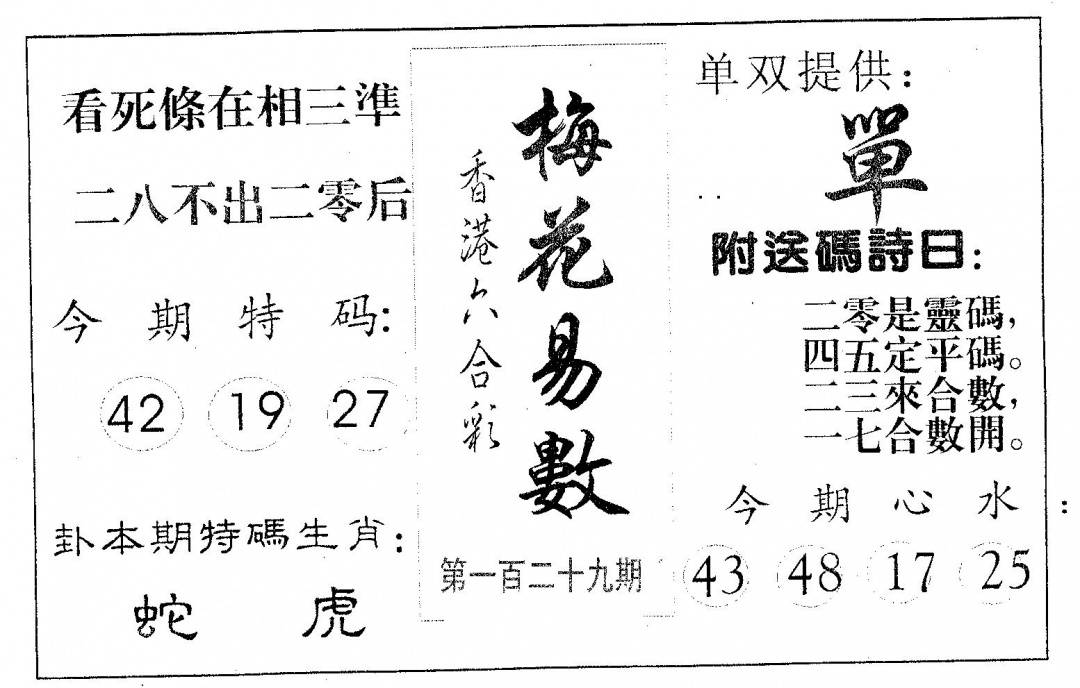 看死條在相三準
二八不出二零后
今期特码:
42 19 27
卦本期特碼生肖:
蛇 虎
梅花易數
香港六合彩
第一百二十九期
单双提供:
單
附送碼詩曰:
二零是靈碼,
四五定平碼。
二三來合數,
一七合數開。
今期心水:
43 48 17 25